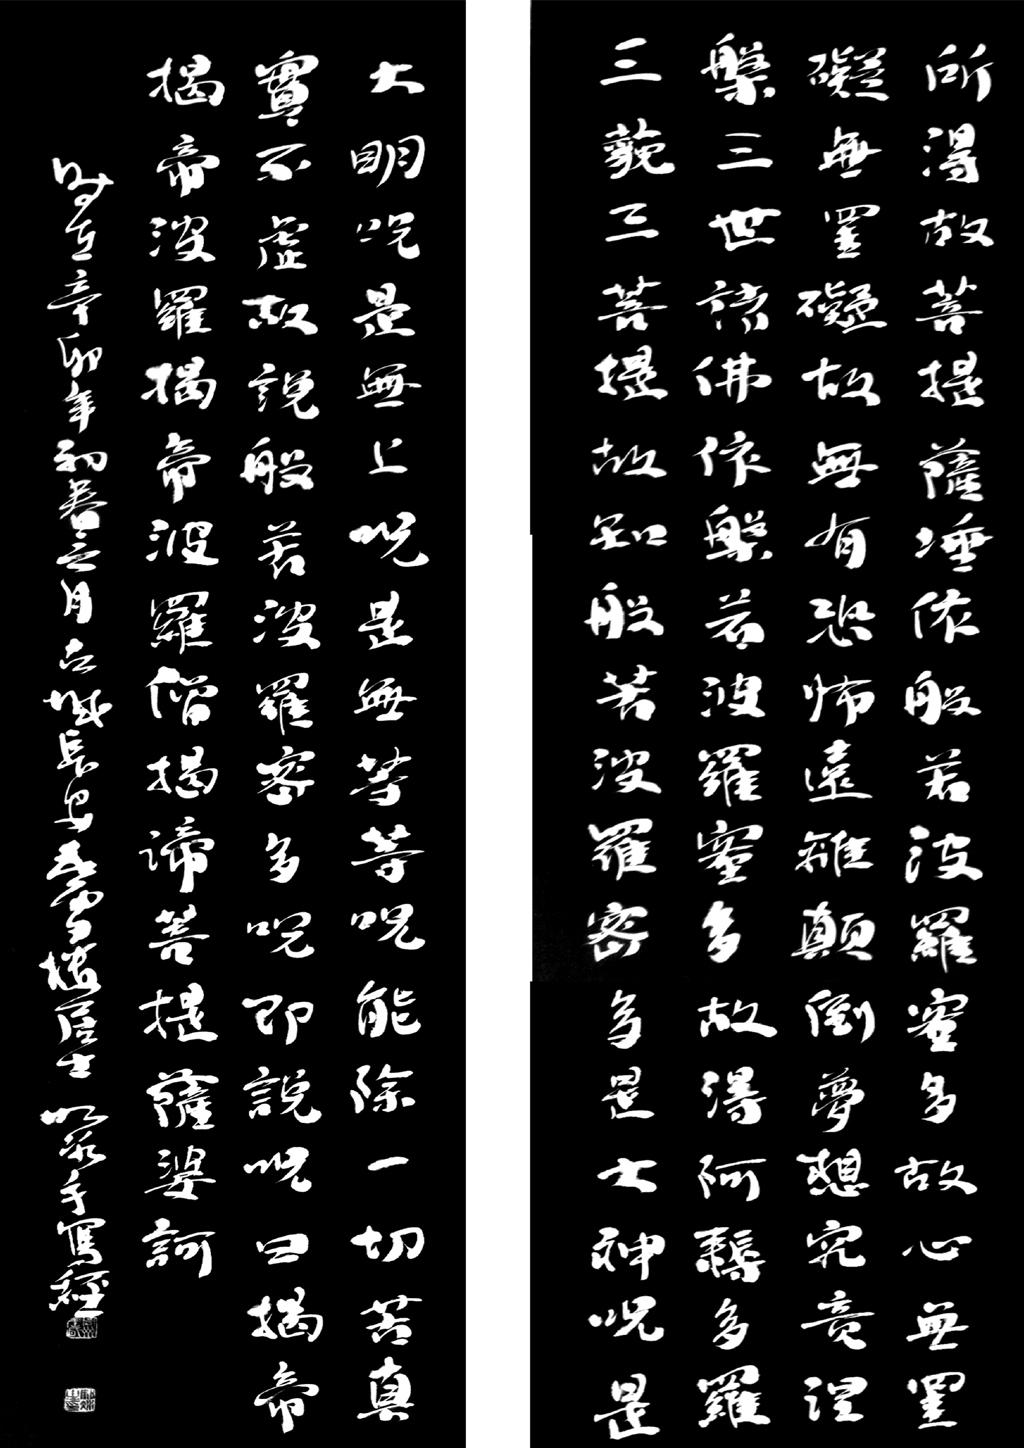 所得故菩提薩埵依般若波羅蜜多故心無罣
礙無罣礙故無有恐怖遠離顛倒夢想究竟涅
槃三世諸佛依槃若波羅蜜多故得阿耨多羅
三藐三菩提故知般若波羅密多是大神呪是
大明呪是無上呪是無等等呪能除一切苦真
實不虛故說般若波羅密多呪即說呪曰揭帝
揭帝波羅揭帝波羅僧揭諦菩提薩婆訶
時在辛卯年初春之月古城長安雪樓居士手寫經